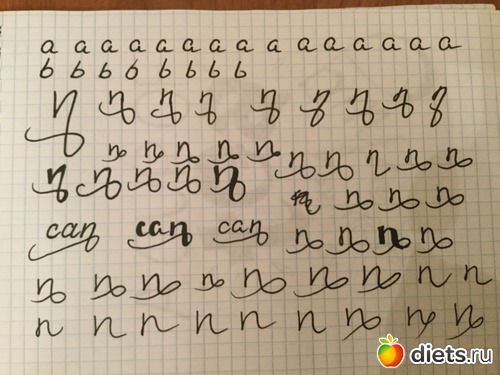 a a a a a a a a a a a a a a a
b b b b b b b b
n n n n n n n n n
n n n n n
n n n n n n n n n n
n n n
can can can n n n n
n n n n n n n n n
n n n n n n n n n
diets.ru